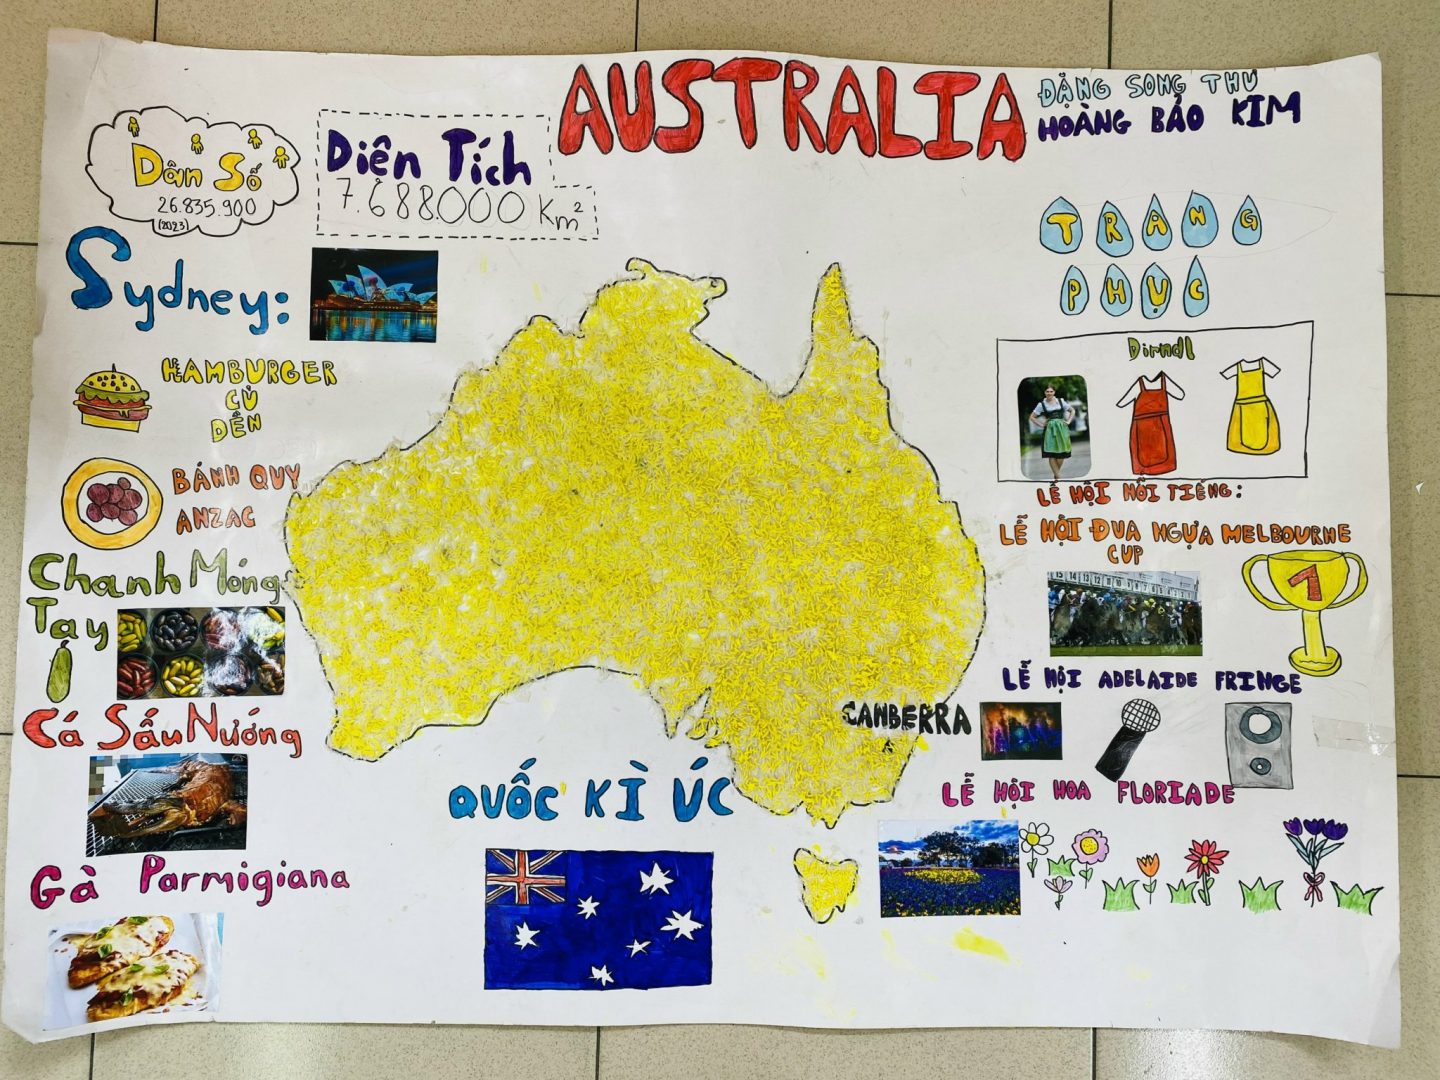 AUSTRALIA
ĐẶNG SONG THƯ
HOÀNG BẢO KIM
Dân Số
26.835.900
(2023)
Diện Tích
7.688.000 Km²
Sydney:
HAMBURGER
CỦ
DỀN
BÁNH QUY
ANZAC
Chanh Móng
Tay
Cá Sấu Nướng
Gà Parmigiana
QUỐC KÌ ÚC
CANBERRA
TRANG
PHỤC
Dirndl
LỄ HỘI NỔI TIẾNG:
LỄ HỘI ĐUA NGỰA MELBOURNE
CUP
15 14 13 12 11 10 9 8
1
LỄ HỘI ADELAIDE FRINGE
LỄ HỘI HOA FLORIADE